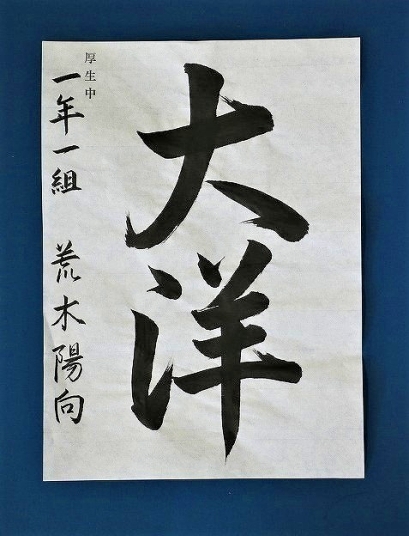 大洋
厚生中
一年一組 荒木陽向